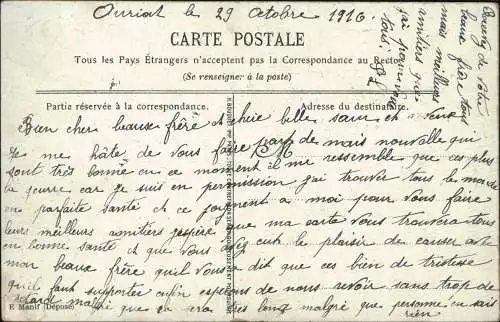 Ouriat le 29 octobre 1916
CARTE POSTALE
Tous les Pays Étrangers n'acceptent pas la Correspondance au Recto
(Se renseigner à la poste)
Partie réservée à la correspondance.
Adresse du destinataire.
Bien cher beaux frère et chère belle sœur et
Je me hâte de vous faire par de mais nouvelle qui
sont très bonne en ce moment il me ressemble que ces plus
la guerre car je suis en permission j'ai trouver tous le monde
en parfaite santé et ce joyment a moi pour vous faire
leurs meilleurs amitiers j'espère que ma carte vous trouvera tous
en bonne santé et que vous le plaisir de causer avec
mon beaux frère qu'il vous a dit que ces bien de tristesse
qu'il faut supporter enfin esperons de nous revoir sans trop de
retard malgré que sa era très long malgré que personne en sais
rien
E Manif (Déposé)
de votre
beau frère tous
mais meilleurs
amitiers que
j'ai pour vous
tous